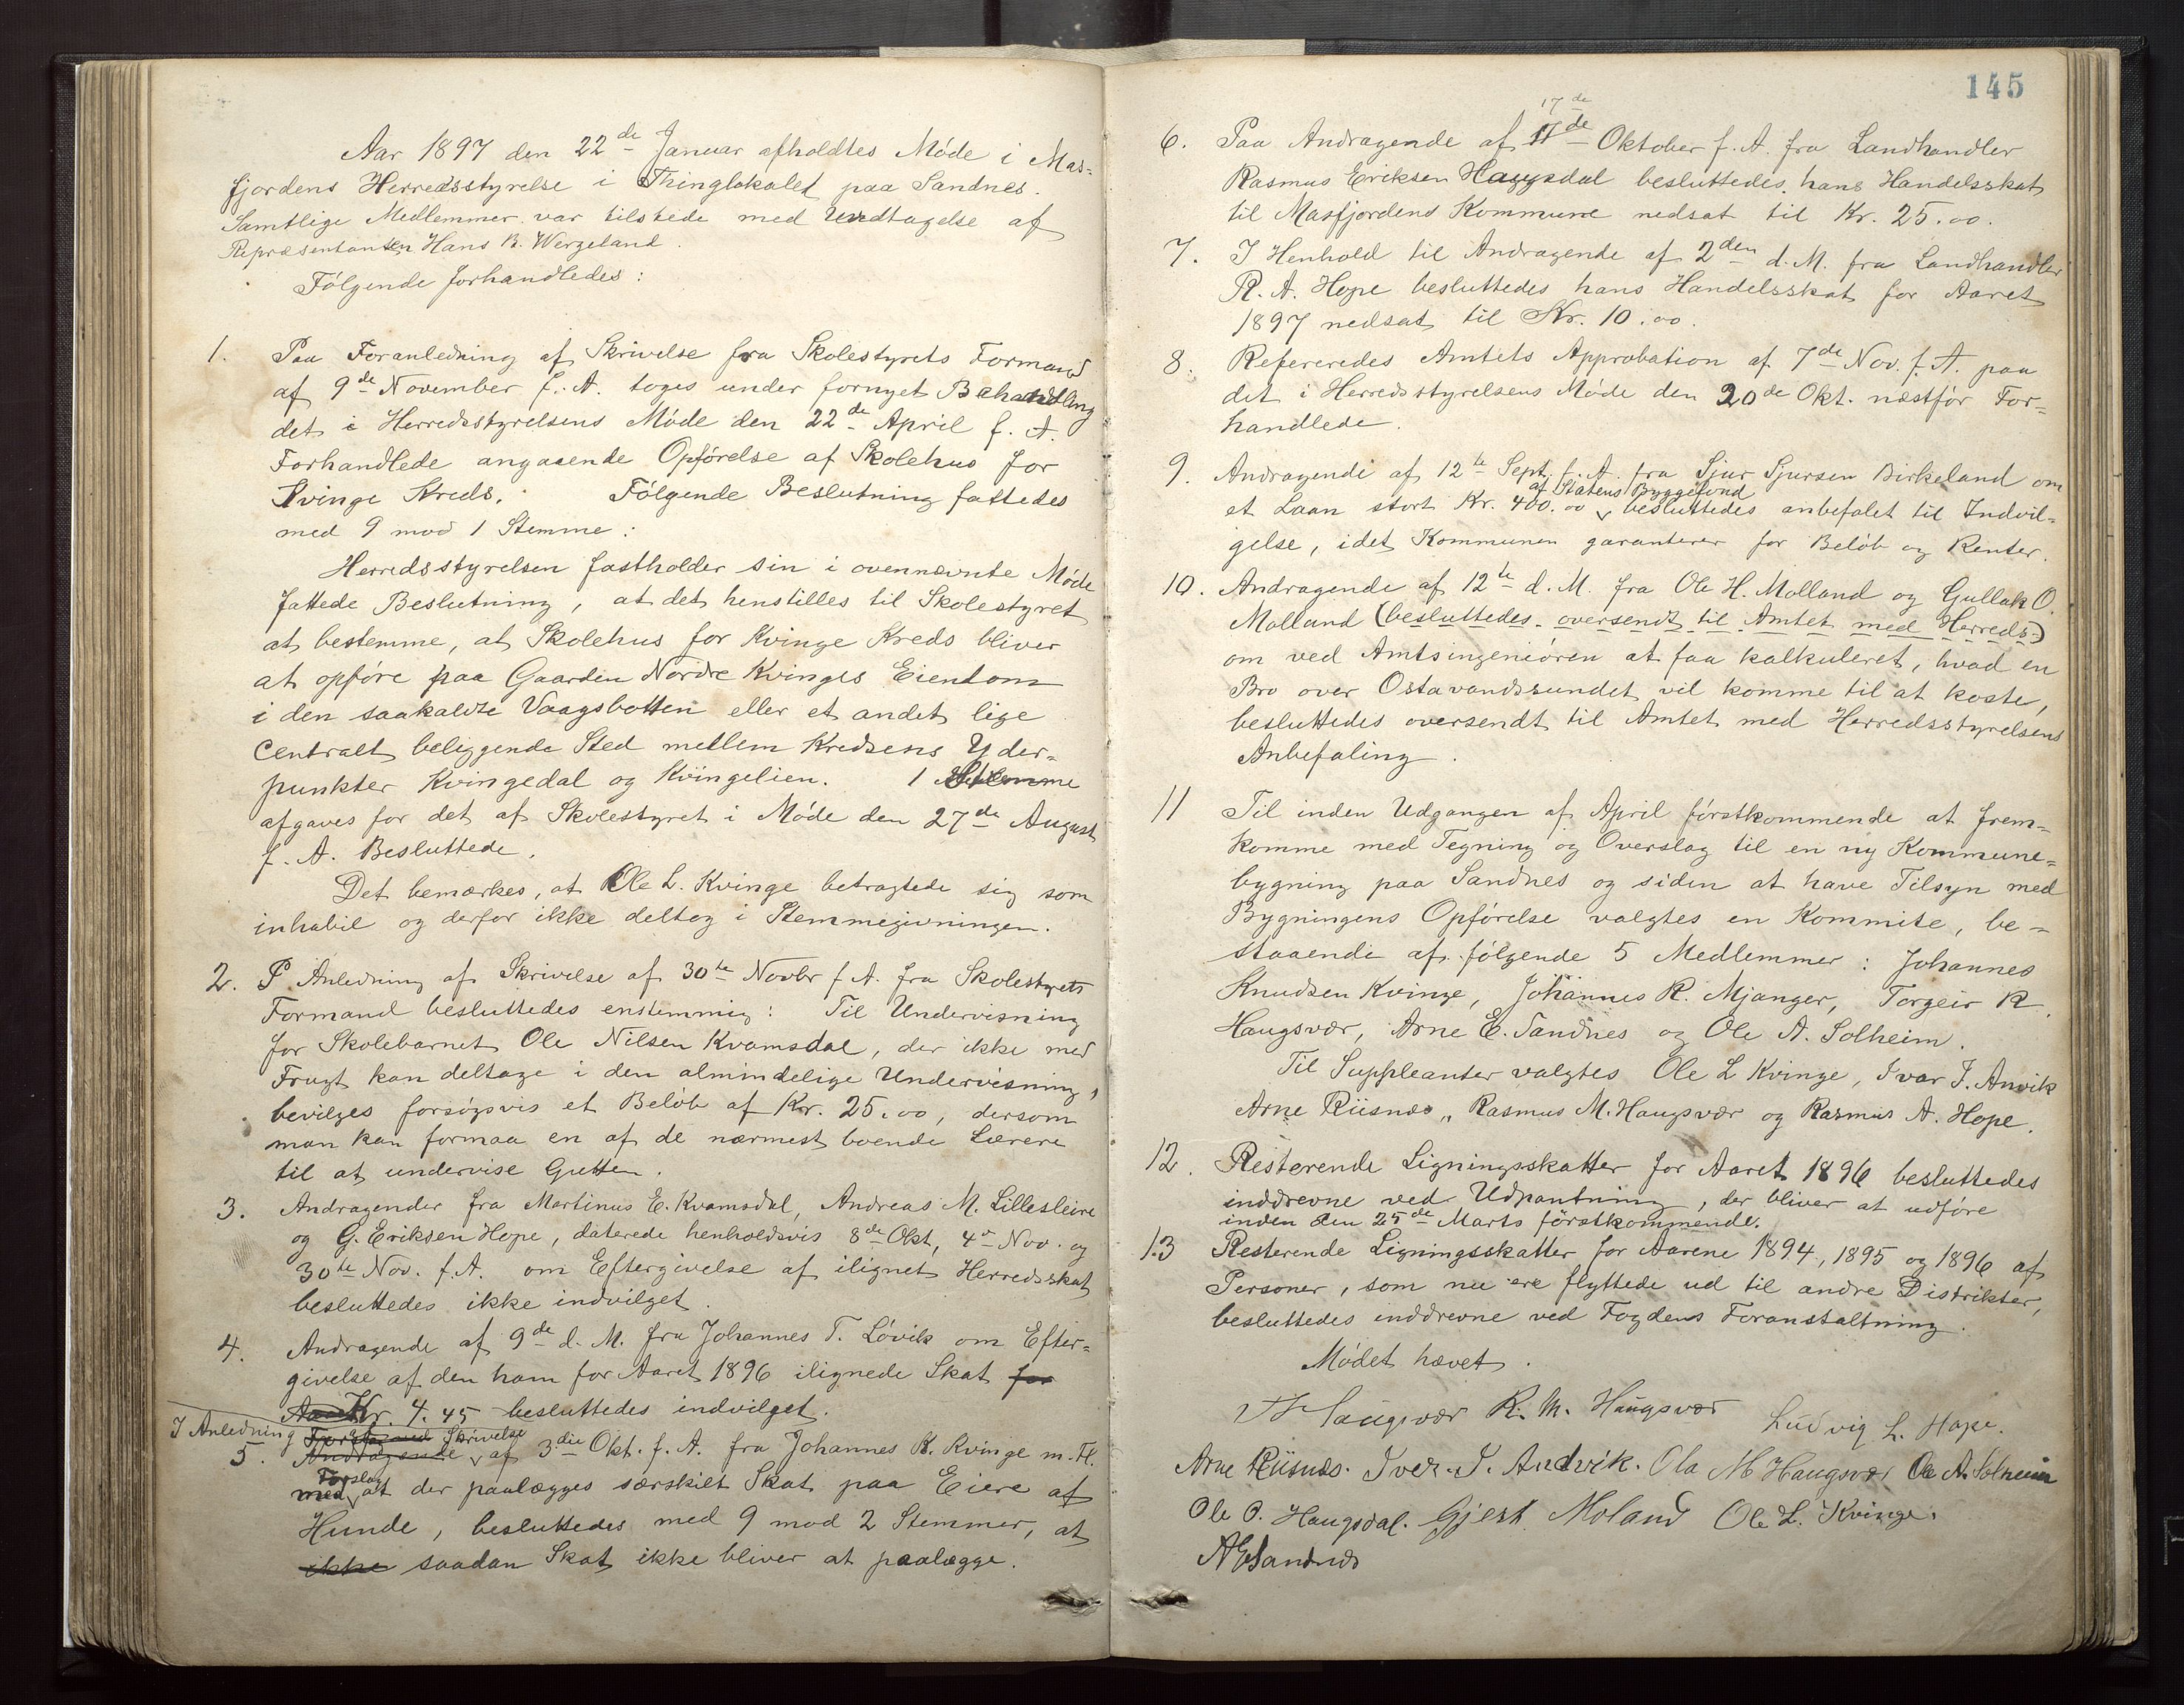 Aar 1897 den 22de Januar afholdtes Møde i Mas-
fjordens Herredsstyrelse i Thinglokalet paa Sandnes.
Samtlige Medlemmer var tilstede med Undtagelse af
Repræsentanten Hans B. Wergeland.
Følgende forhandledes:
1. Paa Foranledning af Skrivelse fra Skolestyrets Formand
af 9de November f. A. toges under fornyet Behandling
det i Herredsstyrelsens Møde den 22de April f. A.
Forhandlede angaaende Opførelse af Skolehus for
Kvinge Kreds. Følgende Beslutning fattedes
med 9 mod 1 Stemme:
Herredsstyrelsen fastholder sin i ovennævnte Møde
fattede Beslutning, at det henstilles til Skolestyret
at bestemme, at Skolehus for Kvinge Kreds bliver
at opføre paa Gaarden Nordre Kvinges Eiendom
i den saakaldte Vaagsbotten eller et andet lige
centralt beliggende Sted mellem Kredsens Yder-
punkter Kvingedal og Kvingelien. 1 Stemme
afgaves for det af Skolestyret i Møde den 27de August
f. A. Besluttede.
Det bemærkes, at Ole L. Kvinge betragtede sig som
inhabil og derfor ikke deltog i Stemmegivningen.
2. I Anledning af Skrivelse af 30te Novbr f. A. fra Skolestyrets
Formand besluttedes enstemmig: Til Undervisning
for Skolebarnet Ole Nilsen Kvamsdal, der ikke med
Frugt kan deltage i den almindelige Undervisning,
bevilges forsøgsvis et Beløb af Kr. 25.00, dersom
man kan formaa en af de nærmest boende Lærere
til at undervise Gutten.
3. Andragender fra Martinus E. Kvamsdal, Andreas M. Lillesleire
og G. Eriksen Hope, daterede henholdsvis 8de Okt, 4de Nov. og
30te Nov. f. A. om Eftergivelse af ilignet Herredsskat
besluttedes ikke indvilget.
4. Andragende af 9de d. M. fra Johannes T. Løvik om Efter-
givelse af den ham for Aaret 1896 ilignede Skat for
Aar Kr. 4.45 besluttedes indvilget.
I Anledning af Skrivelse
5. Andragende af 3die Okt. f. A. fra Johannes K. Kvinge m. Fl.
Forslag
med at der paalægges særskilt Skat paa Eiere af
Hunde, besluttedes med 9 mod 2 Stemmer, at
ikke saadan Skat ikke bliver at paalægge.
145
17de
6. Paa Andragende af 17de Oktober f. A. fra Landhandler
Rasmus Eriksen Haugsdal besluttedes hans Handelsskat
til Masfjordens Kommune nedsat til Kr. 25.00.
7. I Henhold til Andragende af 2den d. M. fra Landhandler
R. A. Hope besluttedes hans Handelsskat for Aaret
1897 nedsat til Kr. 10.00.
8. Refereredes Amtets Approbation af 7de Nov. f. A. paa
det i Herredsstyrelsens Møde den 20de Okt. næstfør For-
handlede.
9. Andragende af 12te Sept. f. A. fra Sjur Sjursen Birkeland om
af Statens Byggefond
et Laan stort Kr. 400.00 besluttedes anbefalet til Indvil-
gelse, idet Kommunen garanterer for Beløb og Renter.
10. Andragende af 12te d. M. fra Ole H. Molland og Gullak O.
Molland (besluttedes oversendt til Amtet med Herreds-)
om ved Amtsingeniøren at faa kalkuleret, hvad en
Bro over Ostavandssundet vil komme til at koste,
besluttedes oversendt til Amtet med Herredsstyrelsens
Anbefaling.
11 Til inden Udgangen af April førstkommende at frem-
komme med Tegning og Overslag til en ny Kommune-
bygning paa Sandnes og siden at have Tilsyn med
Bygningens Opførelse valgtes en Kommite, be-
staaende af følgende 5 Medlemmer: Johannes
Knudsen Kvinge, Johannes R. Mjanger, Torgeir R.
Haugsvær, Arne E. Sandnes og Ole A. Solheim.
Til Suppleanter valgtes Ole L Kvinge, Ivar I. Anvik
Arne Riisnæs, Rasmus M. Haugsvær og Rasmus A. Hope.
12. Resterende Ligningsskatter for Aaret 1896 besluttedes
inddrevne ved Udpantning, der bliver at udføre
inden den 25de Marts førstkommende.
13 Resterende Ligningsskatter for Aarene 1894, 1895 og 1896 af
Personer, som nu ere flyttede ud til andre Distrikter,
besluttedes inddrevne ved Fogdens Foranstaltning.
Mødet hævet.
Haugsvær R. M. Haugsvær Ludvig L. Hope.
Arne Riisnæs. Iver. I. Andvik. Ola M Haugsvær Ole A. Solheim
Ole O. Haugsdal. Gjest Moland Ole L. Kvinge.
AESandnes